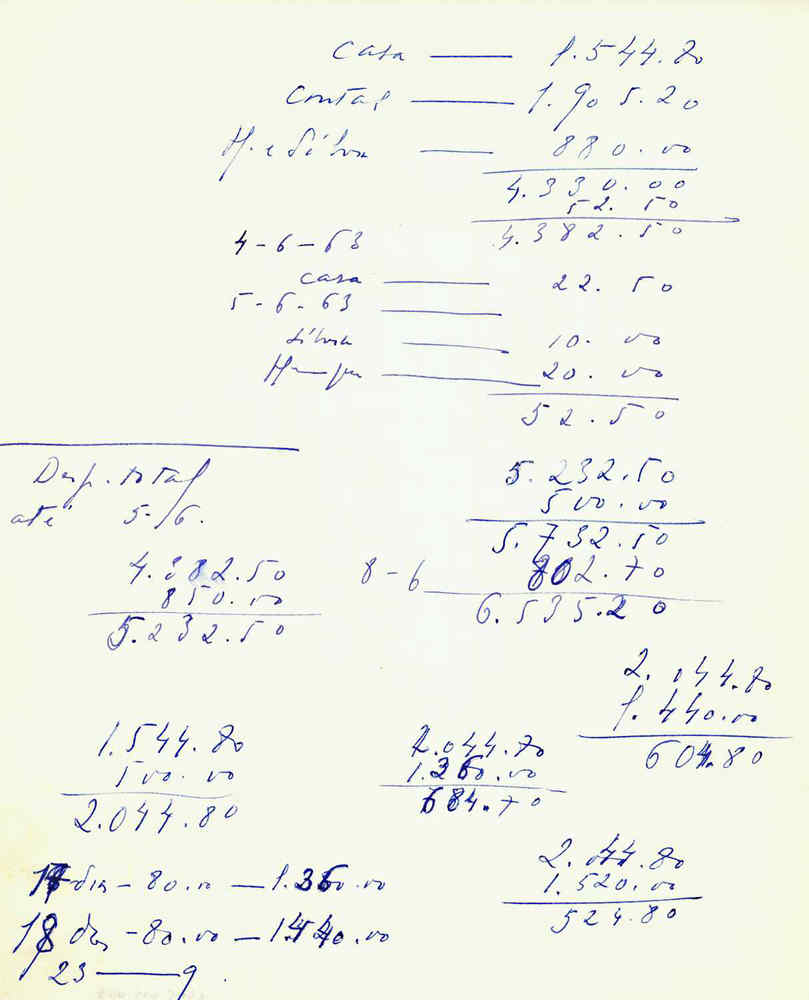 Casa — 1.544.80
Contas — 1.905.20
M. e Sílvia — 880.00
4.330.00
52.50
4.382.50
4-6-63
casa — 22.50
5-6-63 —
Sílvia — 10.00
— 20.00
52.50
Desp. total
até 5-/6.
4.382.50
850.00
5.232.50
5.232.50
500.00
5.732.50
8-6 — 802.70
6.535.20
2.044.80
1.440.00
604.80
1.544.80
500.00
2.044.80
2.044.70
1.360.00
684.70
2.044.80
1.520.00
524.80
17 dias - 80.00 — 1.360.00
18 dias - 80.00 — 1.440.00
23 — 9.